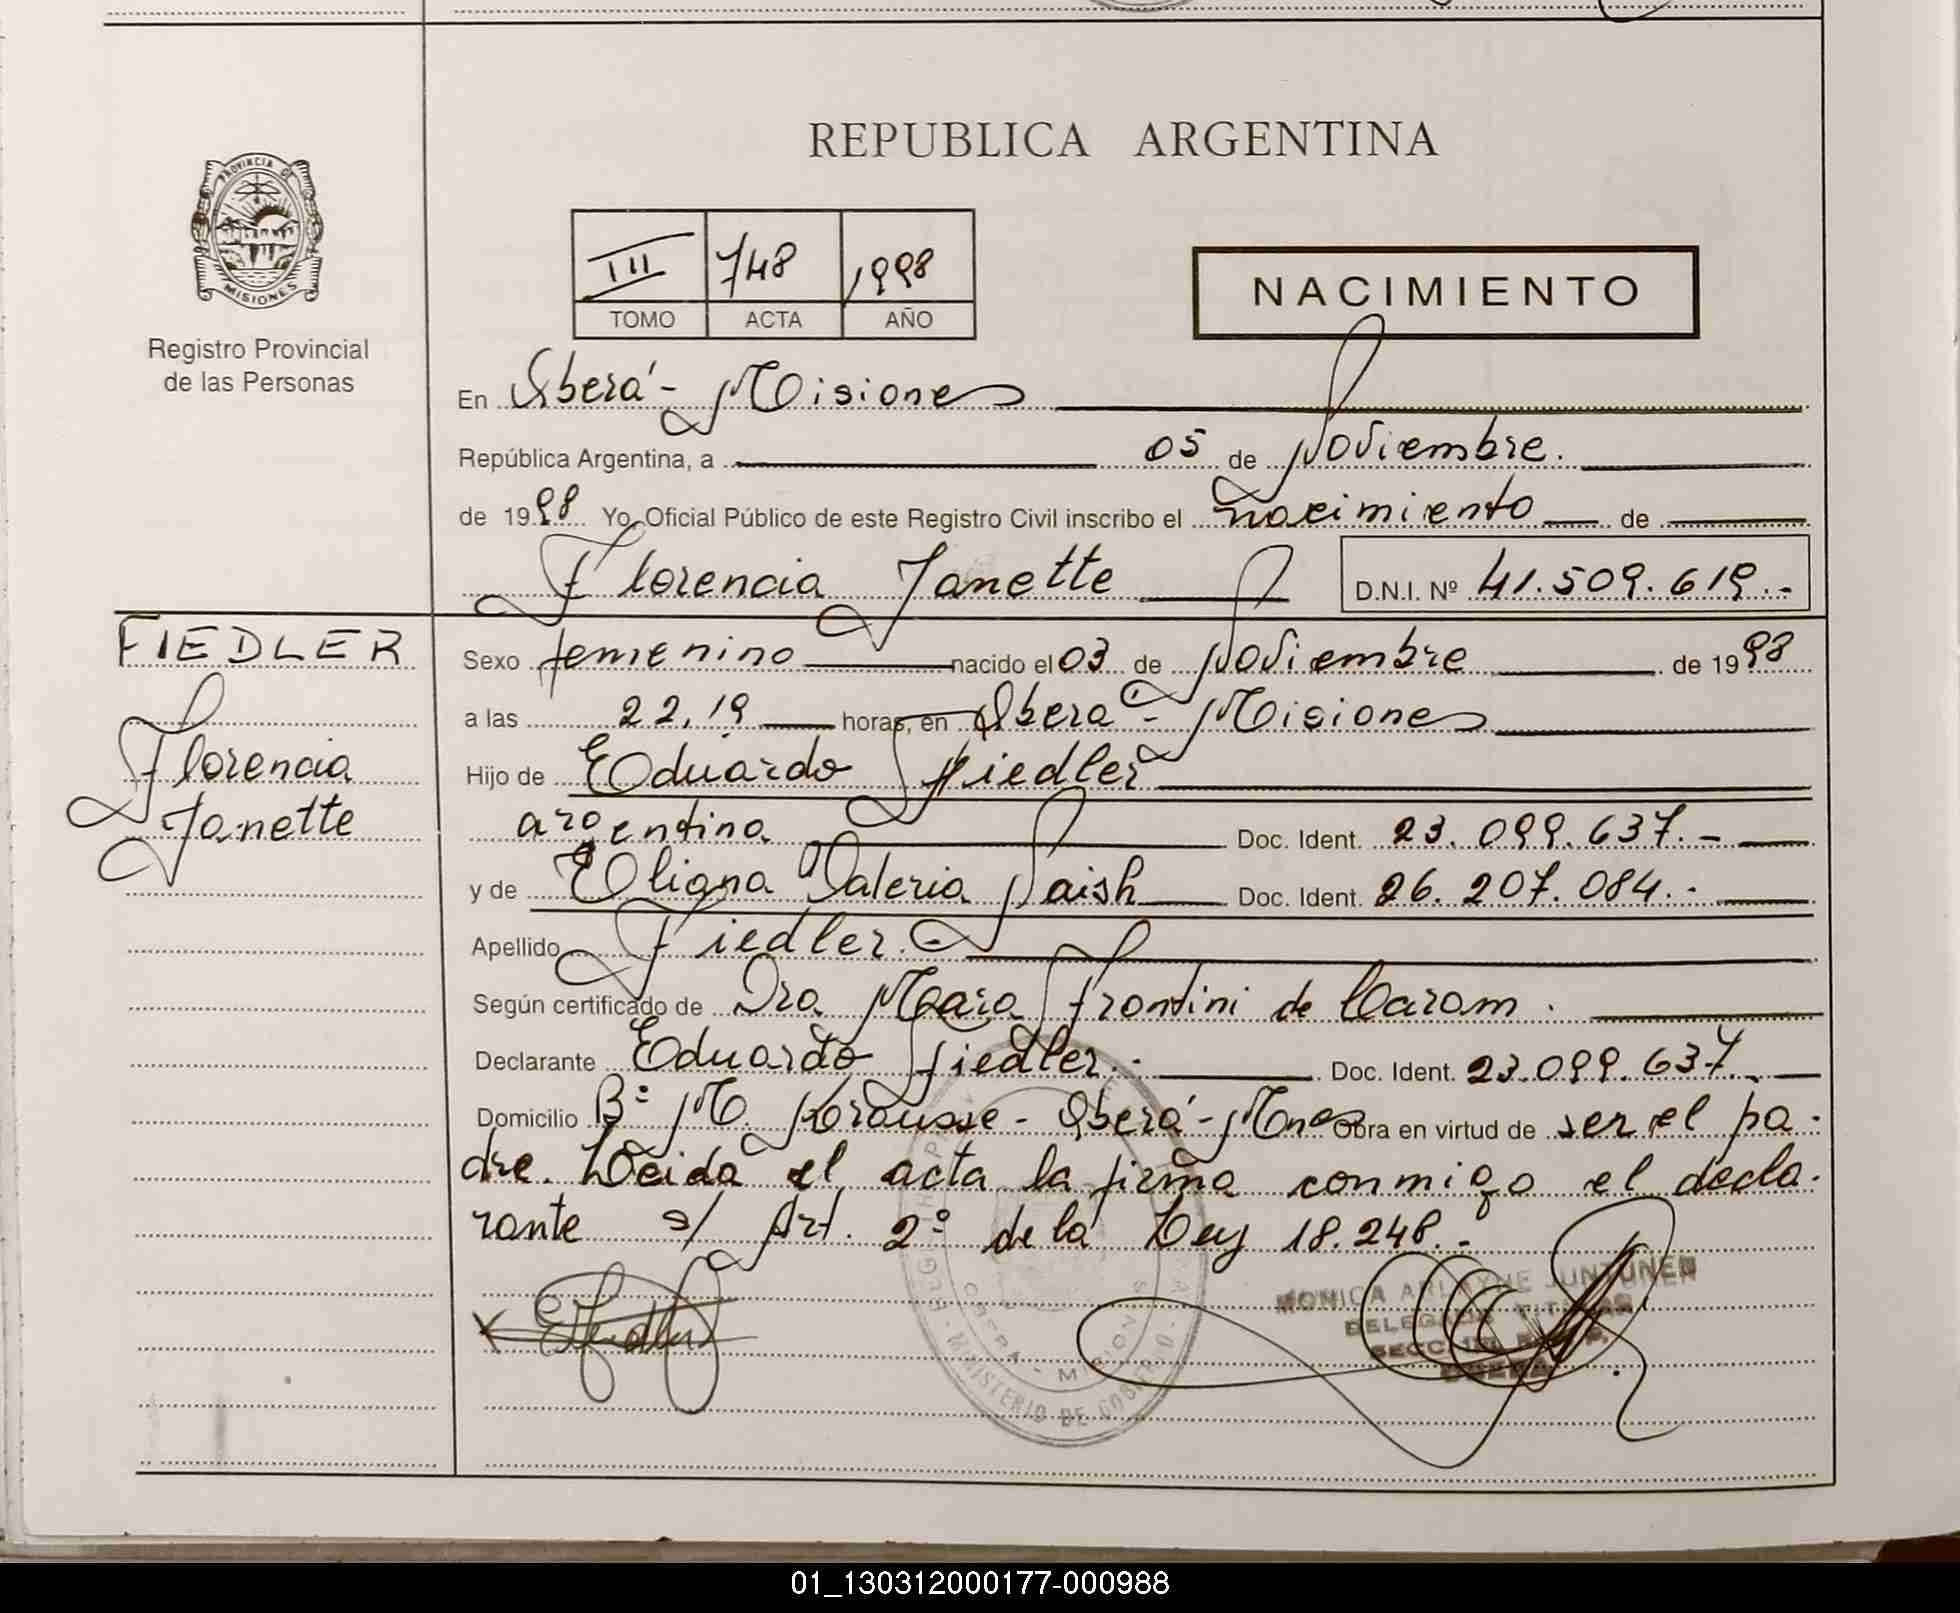 REPUBLICA ARGENTINA
PROVINCIA DE
MISIONES
Registro Provincial
de las Personas
III 748 1998
TOMO ACTA AÑO
NACIMIENTO
En Oberá - Misiones
República Argentina, a 05 de Noviembre.
de 1998 Yo, Oficial Público de este Registro Civil inscribo el nacimiento de
Florencia Janette D.N.I. Nº 41.509.619.-
FIEDLER
Florencia
Janette
Sexo femenino nacido el 03 de Noviembre de 1998
a las 22,19 horas, en Oberá - Misiones
Hijo de Eduardo Fiedler
argentina Doc. Ident. 23.099.637.-
y de Eliana Valeria Paish Doc. Ident. 26.207.084.-
Apellido Fiedler.-
Según certificado de Dra Mara Frontini de Carom.
Declarante Eduardo Fiedler.- Doc. Ident. 23.099.637.
Domicilio Bº M. Krausse - Oberá - Mnes Obra en virtud de ser el pa-
dre. Leida el acta la firma conmigo el decla-
rante s/ Art. 2º de la Ley 18.248.-
MONICA ARLAYNE JUNTUNEN
DELEGADA TITULAR
OBERA
MINISTERIO DE GOBIERNO
OBERA - MISIONES
01_130312000177-000988